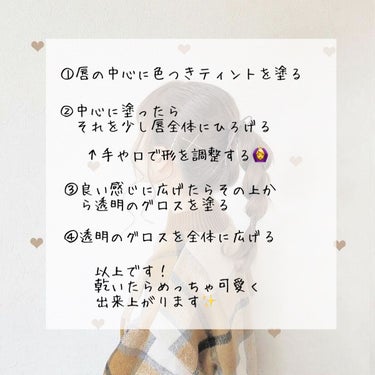 ①唇の中心に色つきティントを塗る
②中心に塗ったら
それを少し唇全体にひろげる
↑手や口で形を調整する🙆‍♀️
③良い感じに広げたらその上か
ら透明のグロスを塗る
④透明のグロスを全体に広げる
以上です！
乾いたらめっちゃ可愛く
出来上がります✨